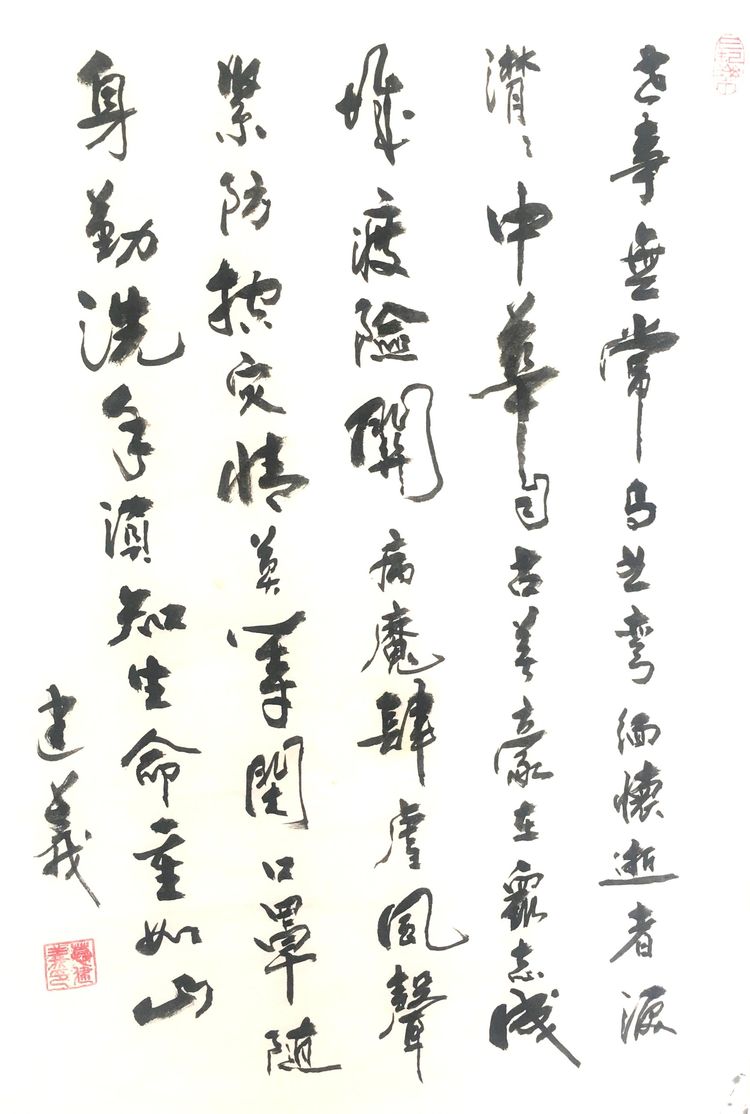 世事無常弯缅懷逝者淚
潸潸中華自古英豪在衆志成
城渡險關病魔肆虐風聲
緊防控灾情莫等閑口罩随
身勤洗手須知生命重如山
建義